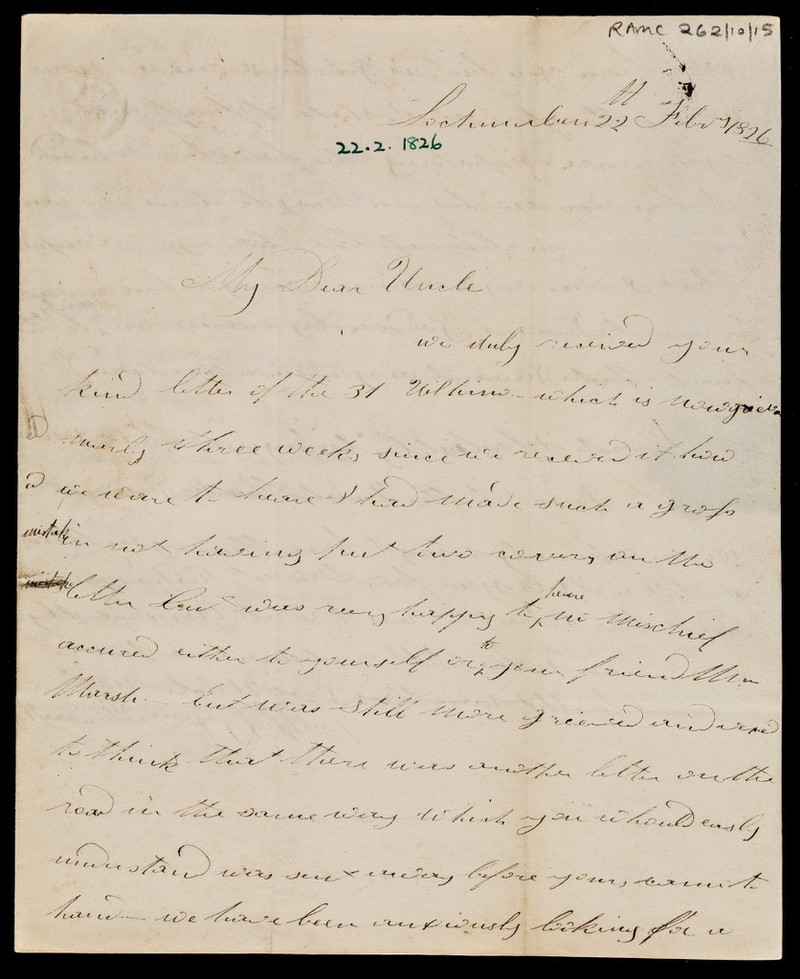 RAMC 262/10/15
Lochmaben 22th Febry 1826
22.2.1826
My Dear Uncle
we duly received your
kind letter of the 31 Ultimo - which is now
nearly three weeks since we received it how
we ware to heare I had made such a gross
mistake in not having put two covers on the
letter but was very happy to heare no mischief
accured either to yourself or to your friend Mr
Marsh - but was still more grieved and vexed
to think that there was another letter on the
road in the same way which you whould easly
understand was sent away before yours came to
hand - we have been anxiously looking for a